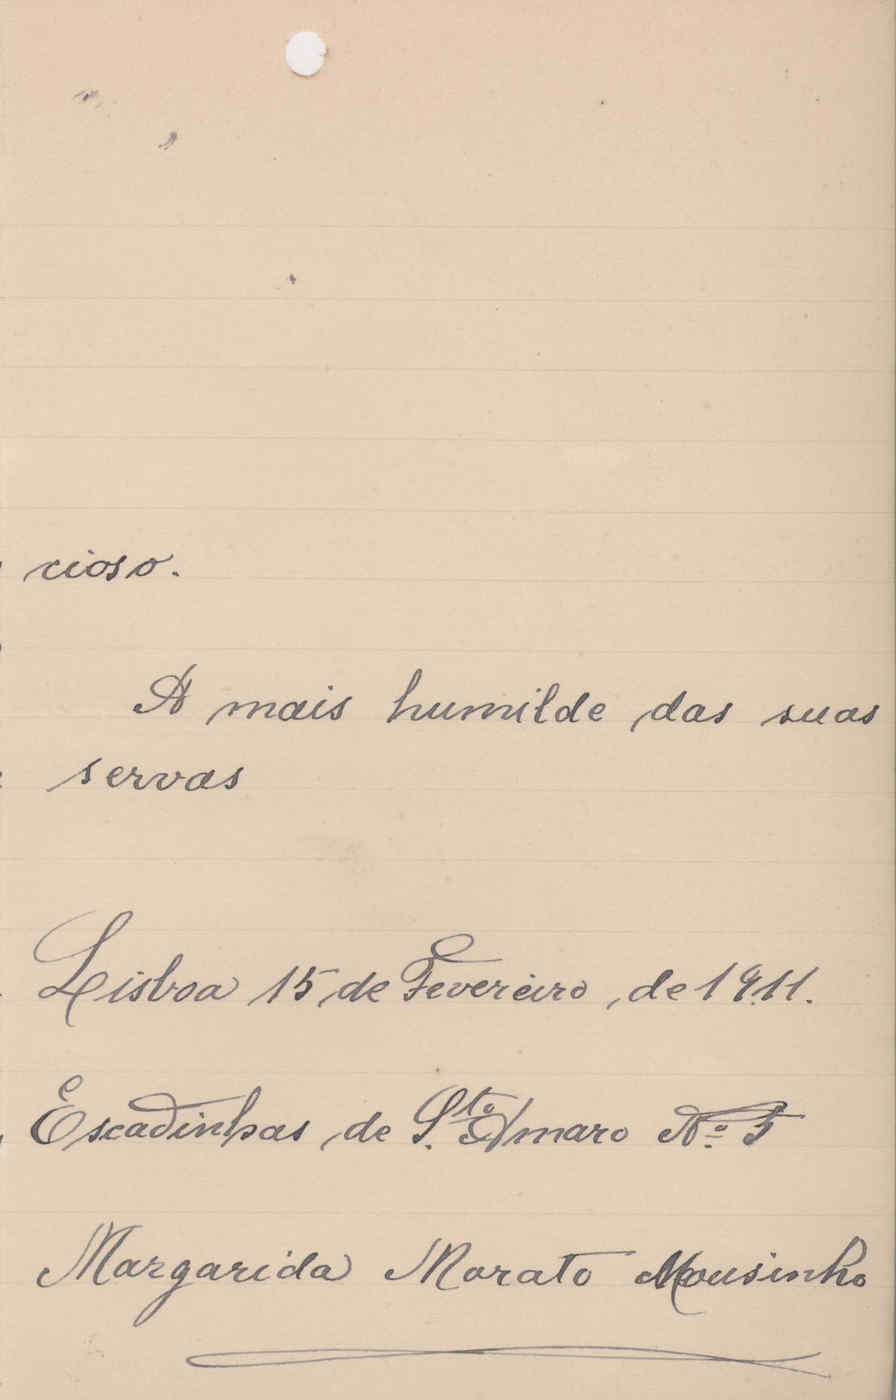 cioso.
A mais humilde das suas
servas
Lisboa 15 de Fevereiro, de 1911.
Escadinhas de S.to Amaro Nº 5
Margarida Morato Mousinho